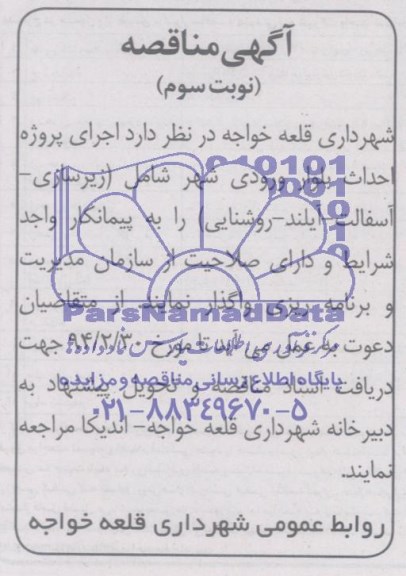 آگهی مناقصه
(نوبت سوم)
شهرداری قلعه خواجه در نظر دارد اجرای پروژه
احداث بلوار ورودی شهر شامل (زیرسازی-
آسفالت-آیلند-روشنایی) را به پیمانکار واجد
شرایط و دارای صلاحیت از سازمان مدیریت
و برنامه ریزی واگذار نمایند. از متقاضیان
ParsNamadData
دعوت به عمل می آید تا مورخ ۹۴/۲/۳۰ جهت
دریافت اسناد مناقصه و تحویل پیشنهاد به
پایگاه اطلاع رسانی مناقصه و مزایده
۰۲۱-۸۸۳۴۹۶۷۰-۵
دبیرخانه شهرداری قلعه خواجه- اندیکا مراجعه
نمایند.
روابط عمومی شهرداری قلعه خواجه